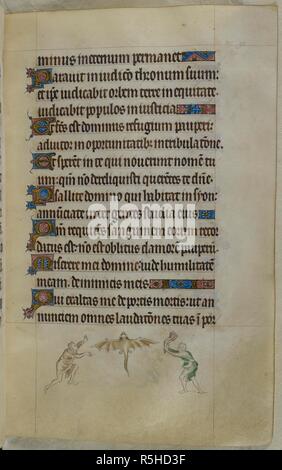 minus in eternum permanet
Parauit in iudicio thronum suum:
et ipse iudicabit orbem terre in equitate
iudicabit populos in iusticia
Et factus est dominus refugium pauperi:
adiutor in oportunitatib; in tribulatione.
Et sperent in te qui nouerunt nomen tu
um: qm̄ non dereliquisti querentes te dn̄e.
Psallite domino qui habitat in syon:
annunciate inter gentes studia eius
Qm̄ requirens sanguinem eorum recor
datus est: nō est oblitus clamorē pauperū.
Miserere mei domine: uide humilitatē
meam. de inimicis meis
Qui exaltas me de portis mortis: ut an
nunciem omnes laudationes tuas in por
alamy
Image ID: R5HD3F
www.alamy.com